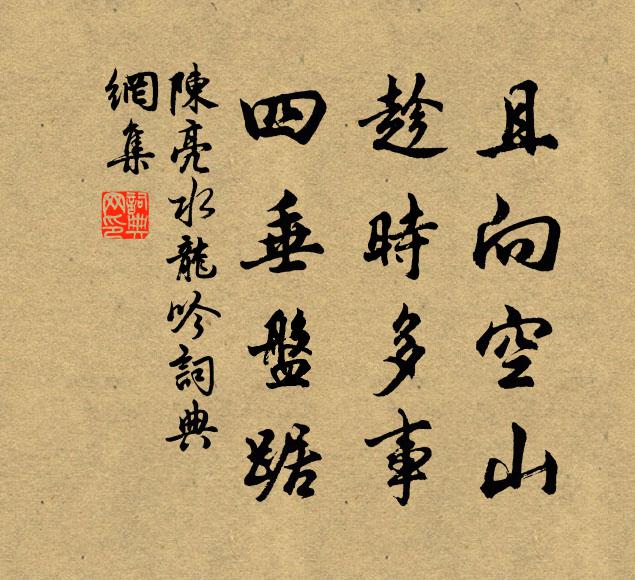 且向空山
趁時多事
四垂盤踞
陳亮水龍吟詞典
網集
詞典
网印